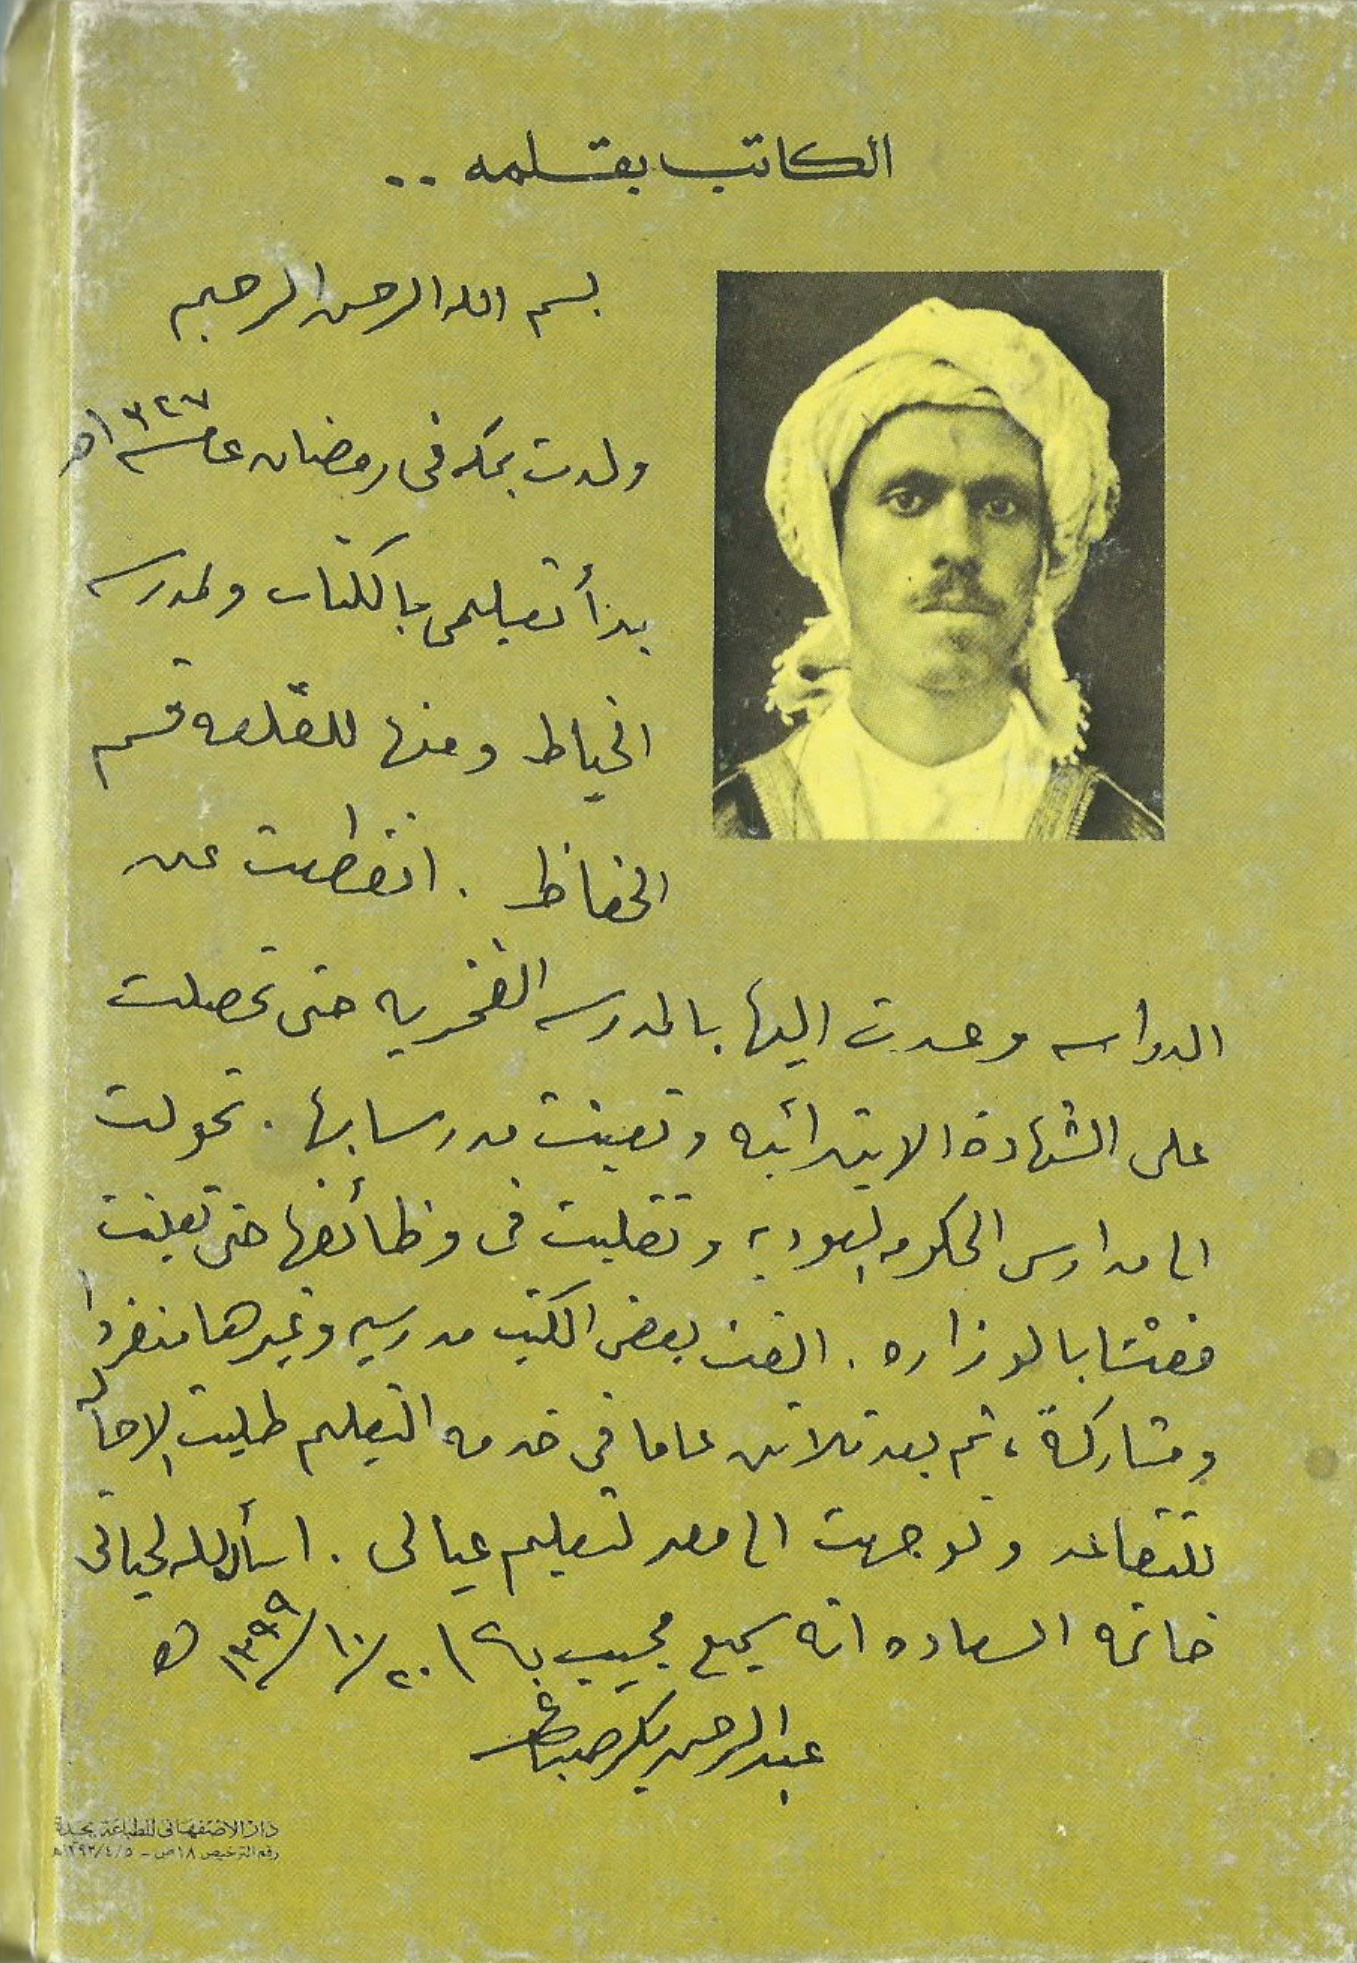 الكاتب بقلمه ..
بسم الله الرحمن الرحيم
ولدت بمكه فى رمضان عام ١٣٢٧ه
بدأ تعليمى بالكتاب ولمدرسه
الخياط ومنها للقلعه قسم
الحفاظ . انقطعت عن
الدراسه وعدت اليها بالمدرسه الفخريه حتى تحصلت
على الشهادة الابتدائيه وتعينت مدرسا بها . تحولت
الى مدارس الحكومه السعوديه وتقلبت فى وظائفها حتى تعينت
مفتشا بالوزاره . الفت بعض الكتب مدرسيه وغيرها منفردا
ومشاركة ، ثم بعد ثلاثين عاما فى خدمه التعليم طلبت الاحاله
للتقاعد وتوجهت الى مصر لتعليم عيالى . اسأل الله لحياتى
خاتمه السعاده انه سميع مجيب ٢٠/١٠/١٣٩٩ ه
عبدالرحمن بكر صباغ
دار الاصفهاني للطباعة بجدة
رقم الترخيص ١٨ص - ١٣٩٢/٤/٥ه